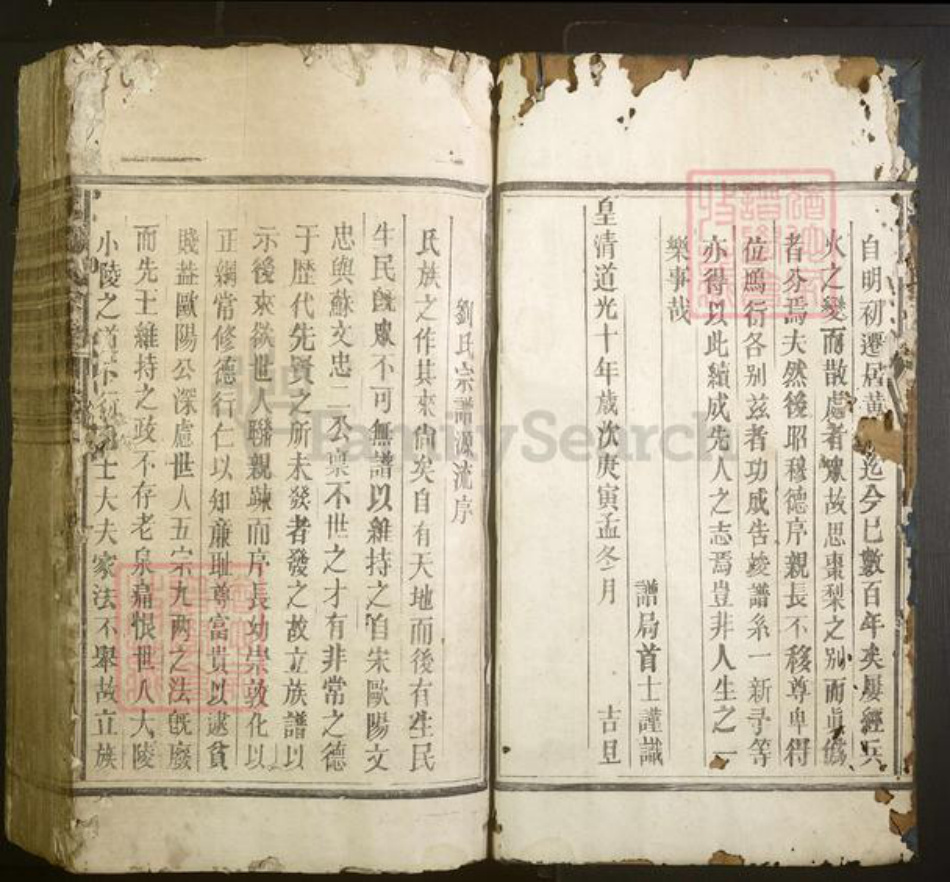 自明初遷居黃 迄今已數百年矣屢經兵
火之變而散處者眾故思棗梨之別而眞僞
者分焉夫然後昭穆德序親長不移尊卑得
位鴈衍各別茲者功成告竣譜系一新予等
亦得以此續成先人之志焉豈非人生之一
樂事哉
譜局首士謹識
皇清道光十年歲次庚寅孟冬月 吉旦
劉氏宗譜源流序
氏族之作其來尙矣自有天地而後有生民
生民旣眾不可無譜以維持之自宋歐陽文
忠與蘇文忠二公稟不世之才有非常之德
于歷代先賢之所未發者發之故立族譜以
示後來欲世人聯親踈而序長幼崇敦化以
正綱常修德行仁以知廉耻尊富貴以逮貧
賤葢歐陽公深慮世人五宗九兩之法旣廢
而先王維持之政不存老泉痛恨世人大陵
小陵之 士大夫家法不舉故立族
FamilySearch